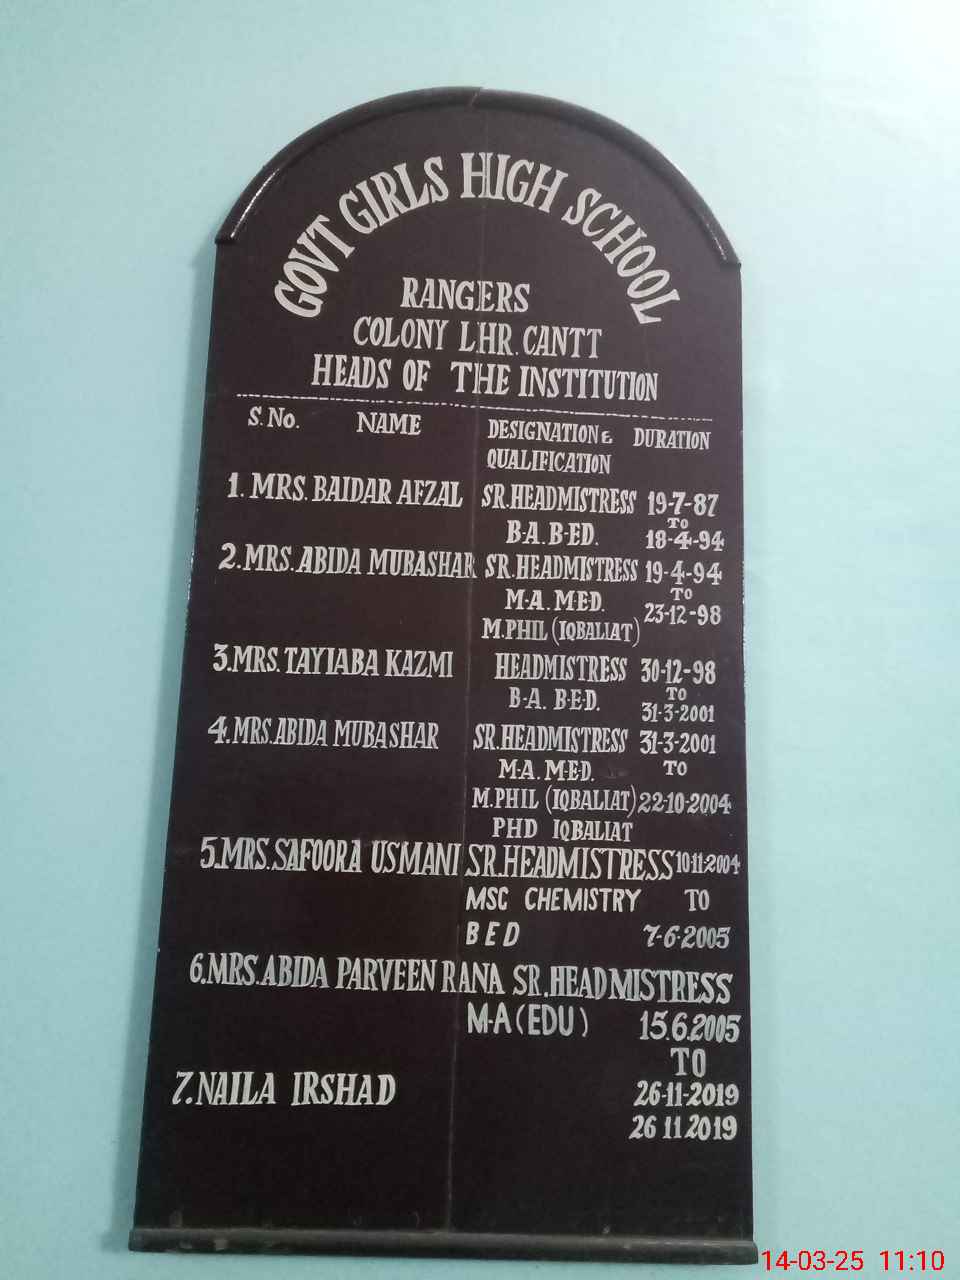 GOVT GIRLS HIGH SCHOOL
RANGERS
COLONY LHR. CANTT
HEADS OF THE INSTITUTION
S. No. NAME DESIGNATION & DURATION
QUALIFICATION
1. MRS. BAIDAR AFZAL SR. HEADMISTRESS 19-7-87
TO
B-A. B-ED. 18-4-94
2. MRS. ABIDA MUBASHAR SR. HEADMISTRESS 19-4-94
M-A. M-ED. TO
23-12-98
M.PHIL (IQBALIAT)
3. MRS. TAYIABA KAZMI HEADMISTRESS 30-12-98
B-A. B-ED. TO
31-3-2001
4. MRS. ABIDA MUBASHAR SR. HEADMISTRESS 31-3-2001
M-A. M-ED. TO
M.PHIL (IQBALIAT) 22-10-2004
PHD IQBALIAT
5. MRS. SAFOORA USMANI SR. HEADMISTRESS 10-11-2004
MSC CHEMISTRY TO
BED 7-6-2005
6. MRS. ABIDA PARVEEN RANA SR. HEADMISTRESS
M-A (EDU) 15.6.2005
TO
7. NAILA IRSHAD 26-11-2019
26 11 2019
14-03-25 11:10